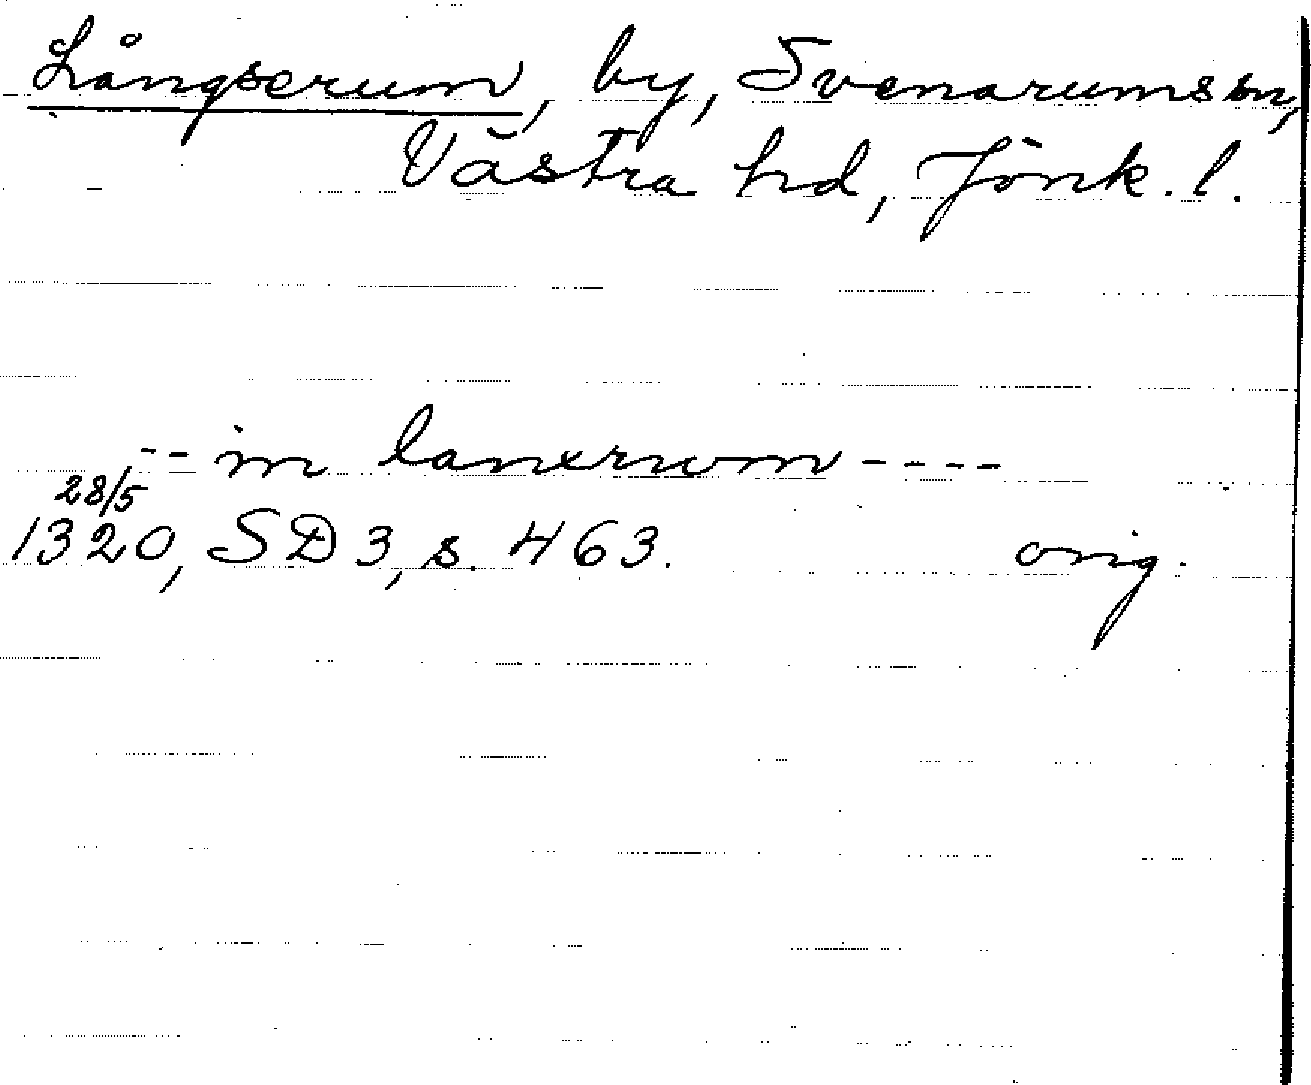 Långserum, by, Svenarums sn,
Västra hd, Jönk. l.
-- in lanxrwm ----
28/5
1320, SD 3, s. 463. orig.